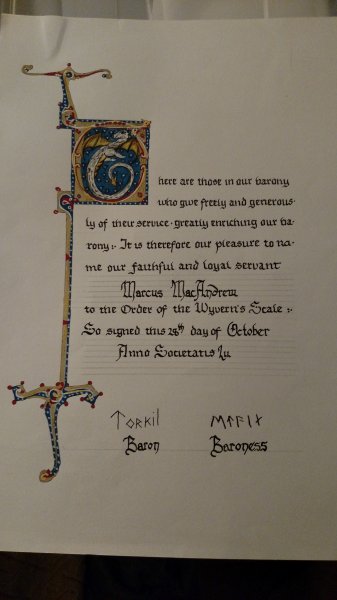 There are those in our barony
who give freely and generous-
ly of their service · greatly enriching our ba-
rony :· It is therefore our pleasure to na-
me our faithful and loyal servant
Marcus MacAndrew
to the Order of the Wyvern's Scale :·
So signed this 28th day of October
Anno Societatis Lii
Torkil
Baron Baroness